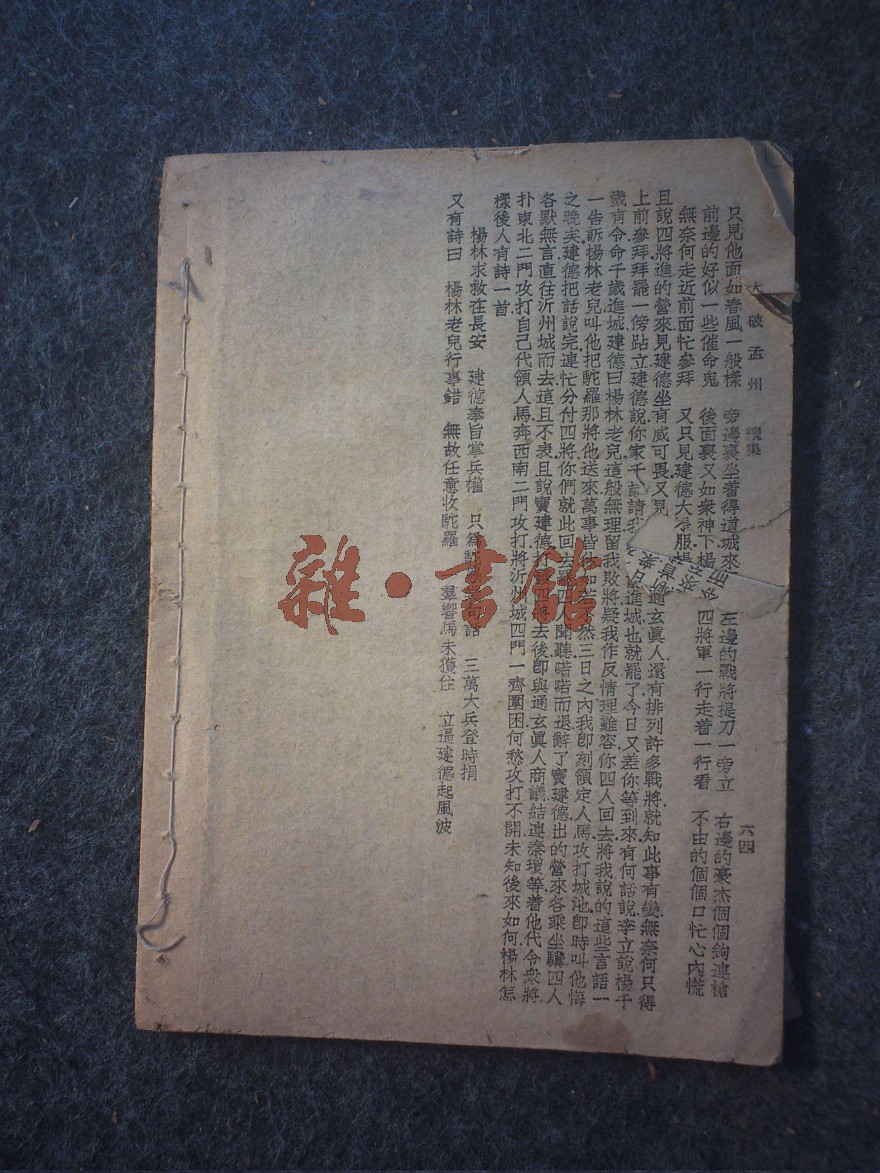 大破孟州 續集 六四
只見他面如春風一般樣 旁邊裏坐着得道城來 左邊的戰將提刀一旁立 右邊的豪杰個個鉤連槍
前邊的好似一些催命鬼 後面裏又如衆神下 四將軍一行走着一行看 不由的個個口忙心內慌
無奈何走近前面忙參拜 又只見建德大 服
且說四將進的營來見建德坐有威可畏又 通玄眞人還有排列許多戰將就知此事有變無奈何只得
上前參拜拜罷一傍跕立建德說你家千 請我 進城也就罷了今日又差你等到來有何話說李立說楊千
歲有令命千歲進城建德曰楊林老兒這般無理留我敗將疑我作反情理難容你四人回去將我說的這些言語一
一告訴楊林老兒叫他把駝羅那將他送來萬事皆 然三日之內我卽刻領定人馬攻打城池卽時叫他悔
之晚矣建德把話說完連忙分付四將你們就此回去罷四人聞聽喏喏而退辭了竇建德出的營來各乘坐驥四人
各默無言直往沂州城而去這且不表且說竇建德打 將去後卽與通玄眞人商議結連秦瓊等着他代令衆將
扑東北二門攻打自己代領人馬奔西南二門攻打將沂州城四門一齊圍困何愁攻打不開未知後來如何楊林怎
樣後人有詩一首
楊林求救在長安 建德奉旨掌兵權 只爲駝 話 三萬大兵登時捐
又有詩曰 楊林老兒行事錯 無故任意收駝羅 羣響馬未獲住 立逼建德起風波
雜·書館